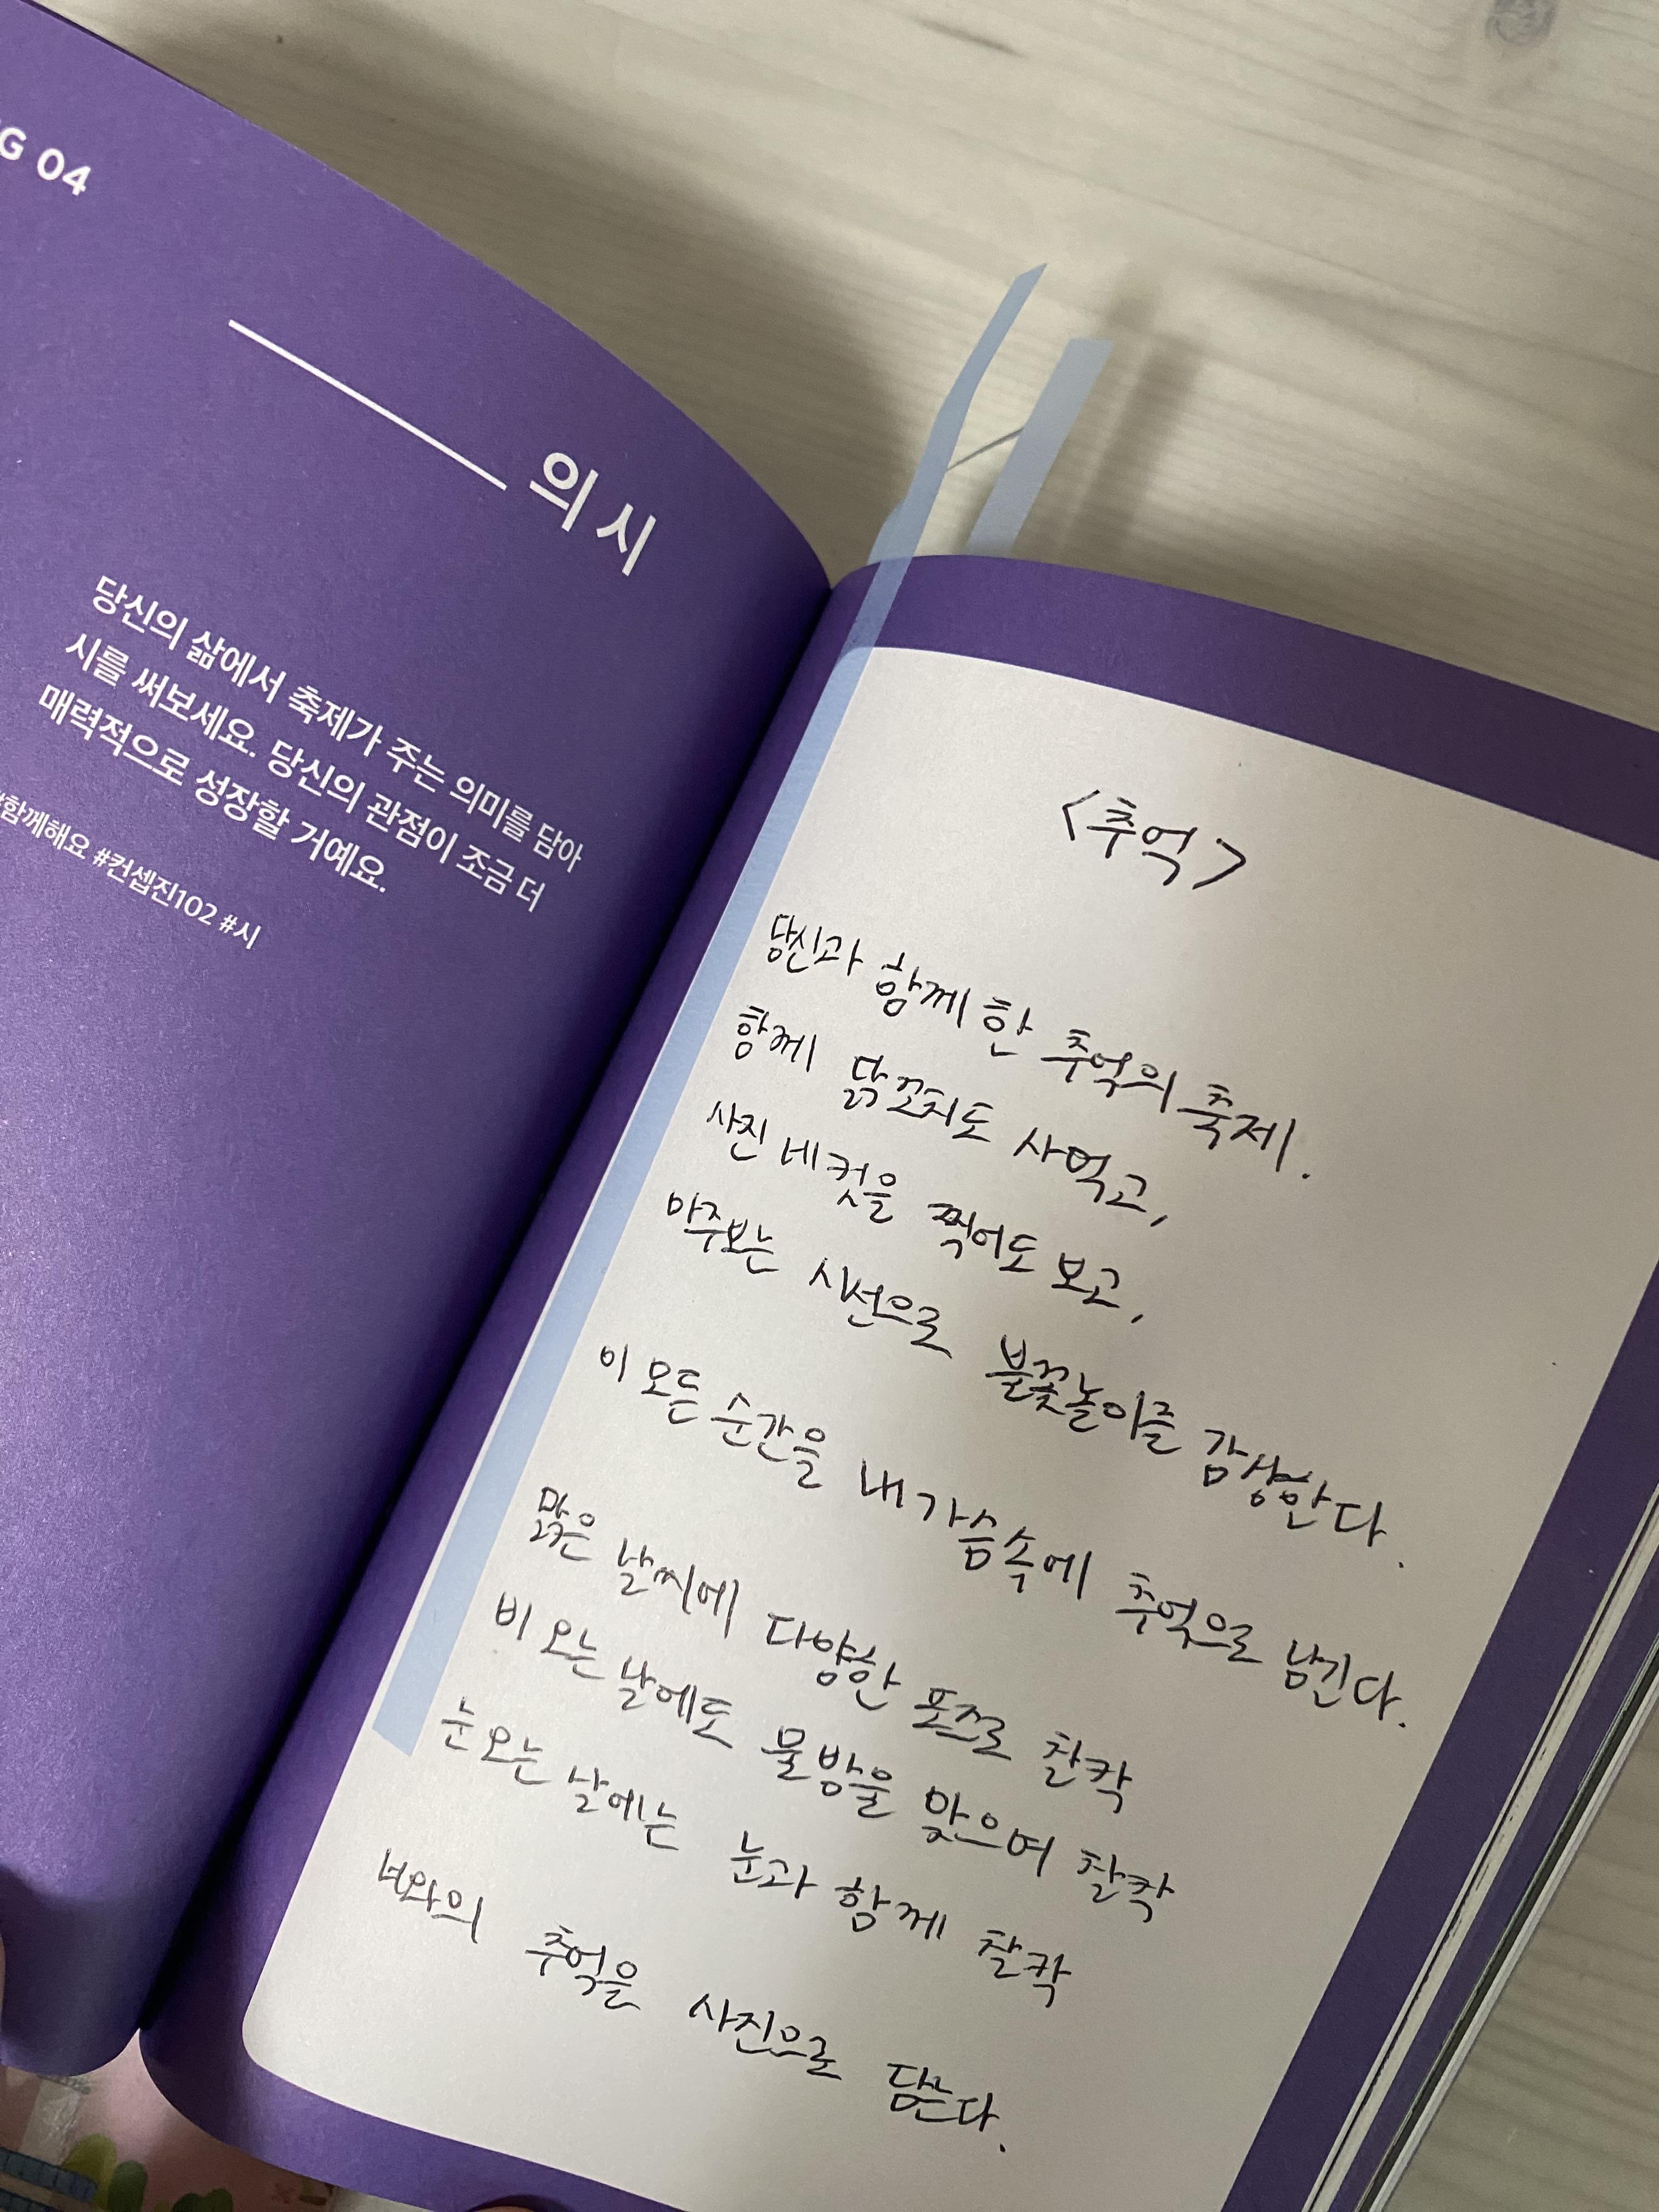 G 04
의 시
당신의 삶에서 축제가 주는 의미를 담아
시를 써보세요. 당신의 관점이 조금 더
매력적으로 성장할 거예요.
#함께해요 #컨셉진102 #시
<추억>
당신과 함께 한 추억의 축제.
함께 닭꼬치도 사먹고,
사진 네컷을 찍어도 보고,
마주보는 시선으로 불꽃놀이를 감상한다.
이 모든 순간을 내 가슴속에 추억으로 남긴다.
맑은 날씨에 다양한 포즈로 찰칵
비 오는 날에도 물방울 맞으며 찰칵
눈 오는 날에는 눈과 함께 찰칵
너와의 추억을 사진으로 담는다.